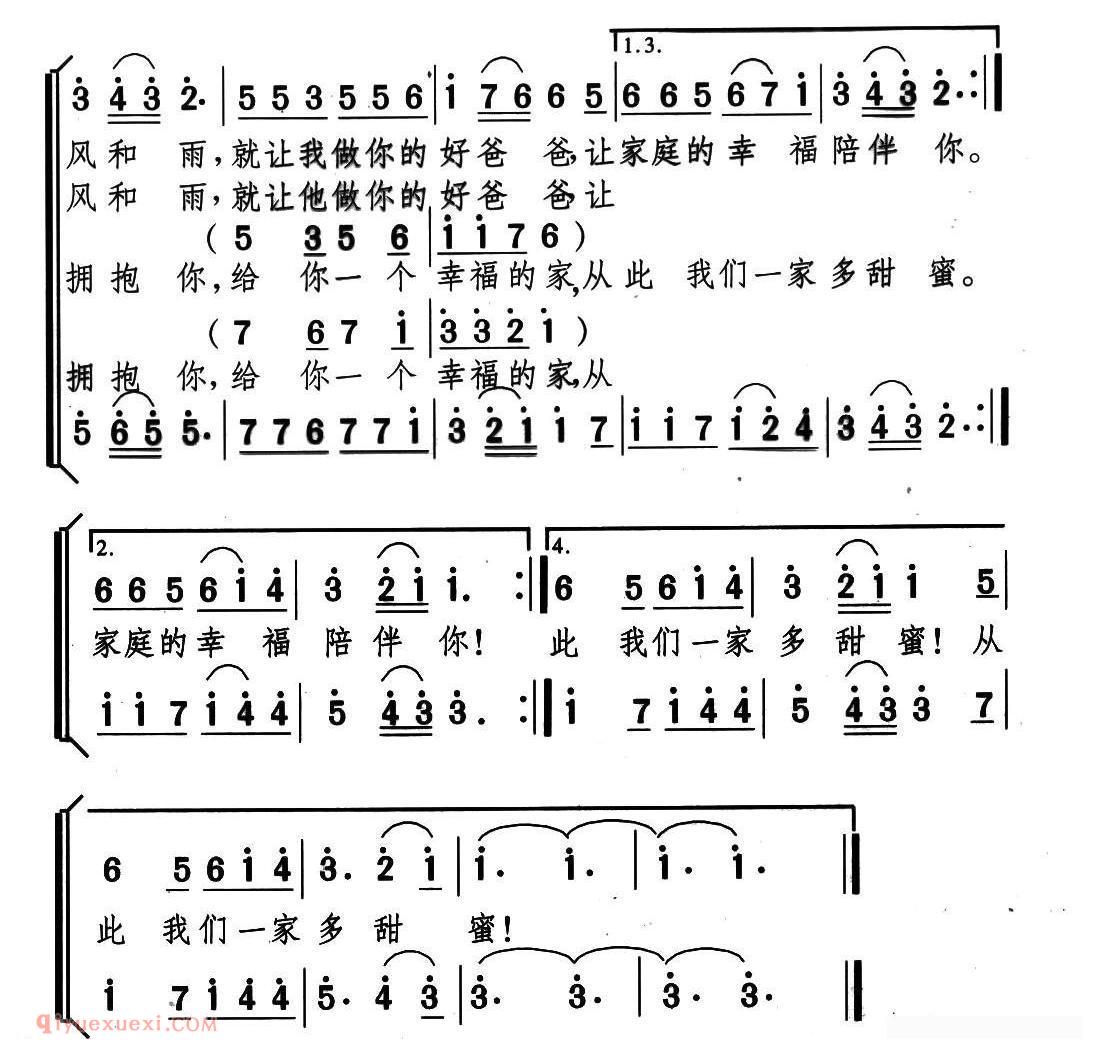 1.3.
3̇ 4̇ 3̇ 2̇. | 5 5 3 5 5 6 | 1̇ 7 6 6 5 | 6 6 5 6 7 1̇ | 3̇ 4̇ 3̇ 2̇. :|
风和 雨,就让我做你的好爸 爸,让家庭的幸 福陪伴 你。
风和 雨,就让他做你的好爸 爸,让
( 5 3 5 6 | 1̇ 1̇ 7 6 )
拥抱 你,给 你一个幸福的家,从此 我们一家多甜 蜜。
( 7 6 7 1̇ | 3̇ 3̇ 2̇ 1̇ )
拥抱 你,给 你一个幸福的家,从
5̇ 6̇ 5̇ 5̇. | 7 7 6 7 7 1̇ | 3̇ 2̇ 1̇ 1̇ 7 | 1̇ 1̇ 7 1̇ 2̇ 4̇ | 3̇ 4̇ 3̇ 2̇. :|
2. 4.
6 6 5 6 1̇ 4̇ | 3̇ 2̇ 1̇ 1̇. :| 6 5 6 1̇ 4̇ | 3̇ 2̇ 1̇ 1̇ 5̇ |
家庭的幸 福 陪伴 你! 此 我们一家多甜 蜜!从
1̇ 1̇ 7 1̇ 4̇ 4̇ | 5̇ 4̇ 3̇ 3̇. :| 1̇ 7 1̇ 4̇ 4̇ | 5̇ 4̇ 3̇ 3̇ 7̇ |
6 5 6 1̇ 4̇ | 3̇. 2̇ 1̇ | 1̇. 1̇. | 1̇. 1̇. ‖
此 我们一家多甜 蜜!
1̇ 7 1̇ 4̇ 4̇ | 5̇. 4̇ 3̇ | 3̇. 3̇. | 3̇. 3̇. ‖
qiyuexuexi.COM